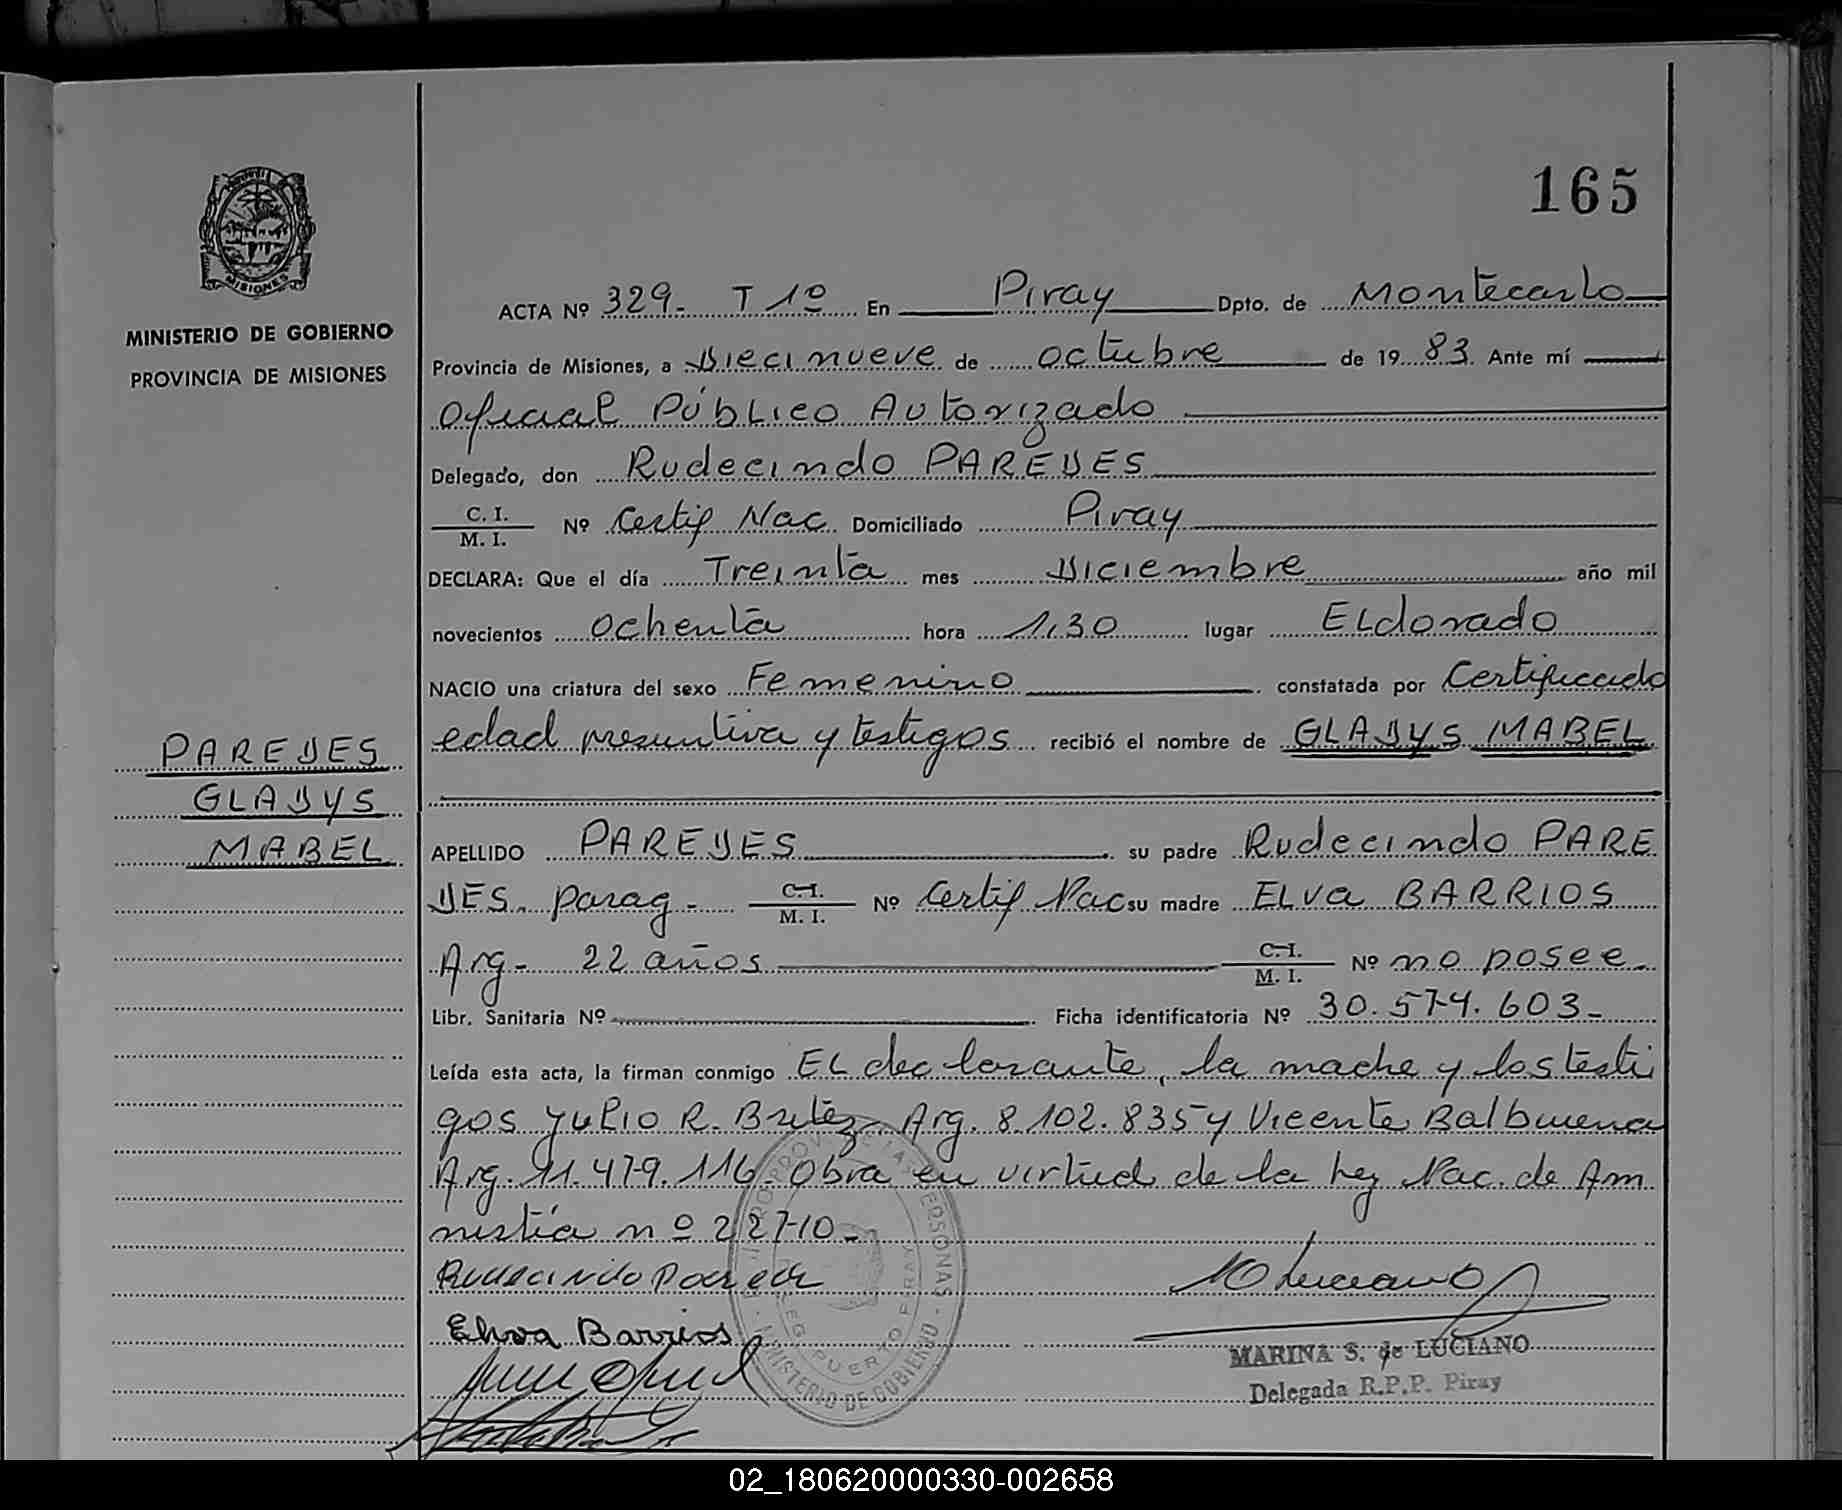 165
MISIONES
MINISTERIO DE GOBIERNO
PROVINCIA DE MISIONES
ACTA Nº 329- T 1º En Piray Dpto. de Montecarlo
Provincia de Misiones, a Diecinueve de octubre de 19 83 Ante mí
Oficial Público Autorizado
Delegado, don Rudecindo PAREDES
C. I. / M. I. Nº Certif Nac Domiciliado Piray
DECLARA: Que el día Treinta mes Diciembre año mil
novecientos ochenta hora 1,30 lugar ELdorado
NACIO una criatura del sexo Femenino constatada por Certificado
edad presuntiva y testigos recibió el nombre de GLADYS MABEL
PAREDES
GLADYS
MABEL
APELLIDO PAREDES su padre Rudecindo PARE
DES. parag- C.I. / M. I. Nº Certif Nac su madre ELva BARRIOS
Arg- 22 años C.I. / M. I. Nº no posee-
Libr. Sanitaria Nº Ficha identificatoria Nº 30.574.603-
Leída esta acta, la firman conmigo EL declarante, la madre y los testi
gos Julio R. Britez Arg. 8.102.835 y Vicente Balbuena
Arg. 11.479.116. Obra en virtud de la Ley Nac. de Am
nistía nº 22710-
Rudecindo Paredes
Elva Barrios
MARINA S. de LUCIANO
Delegada R.P.P. Piray
MINISTERIO DE GOBIERNO
PUERTO PIRAY
02_180620000330-002658